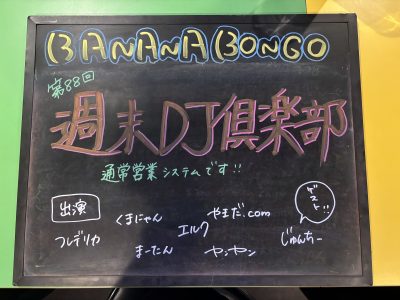 BANANA BONGO
第88回
週末DJ倶楽部
通常営業システムです!!
出演
ゲスト!!
くまにゃん
やまだ.com
フレデリカ
エルク
じゅんちー
まーたん
ヤンヤン